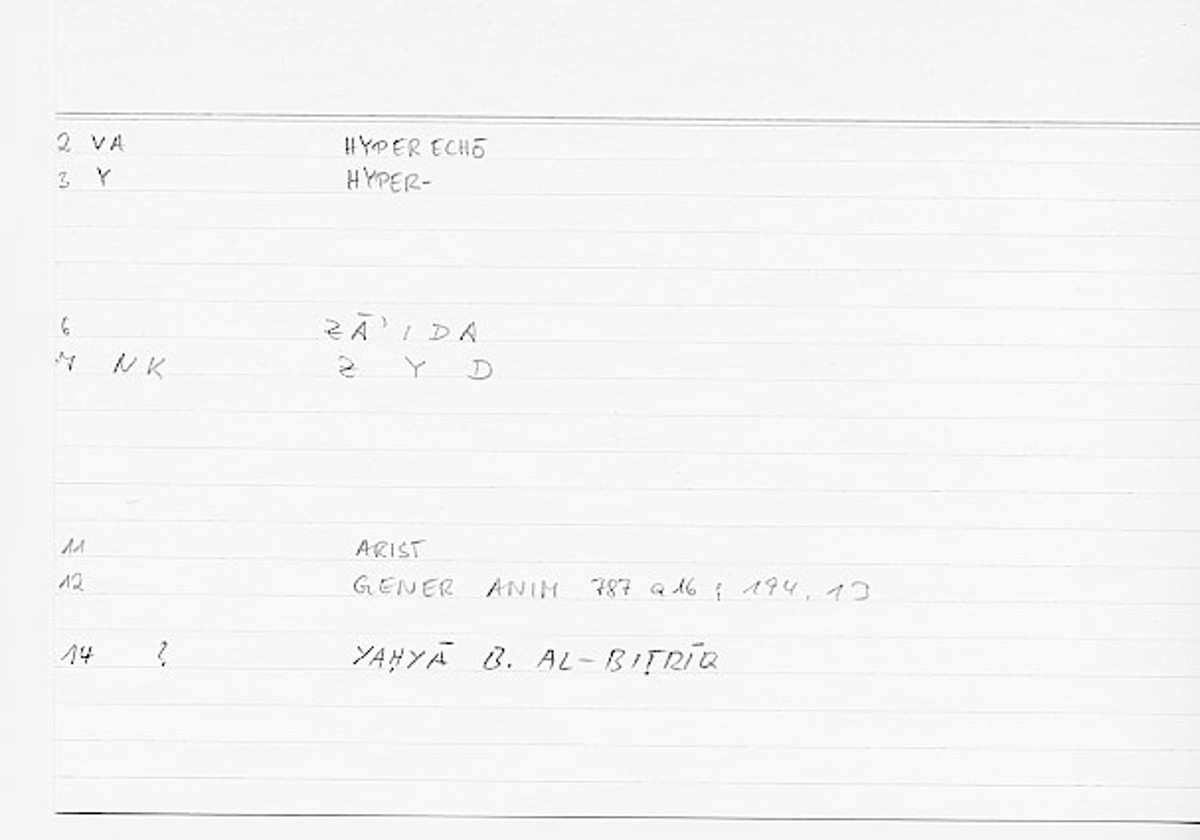 2 VA HYPERECHŌ
3 Y HYPER-
6 ZĀʾIDA
7 NK Z Y D
11 ARIST
12 GENER ANIM 787 a16 ; 194, 13
14 ? YAḤYĀ B. AL-BIṬRĪQ